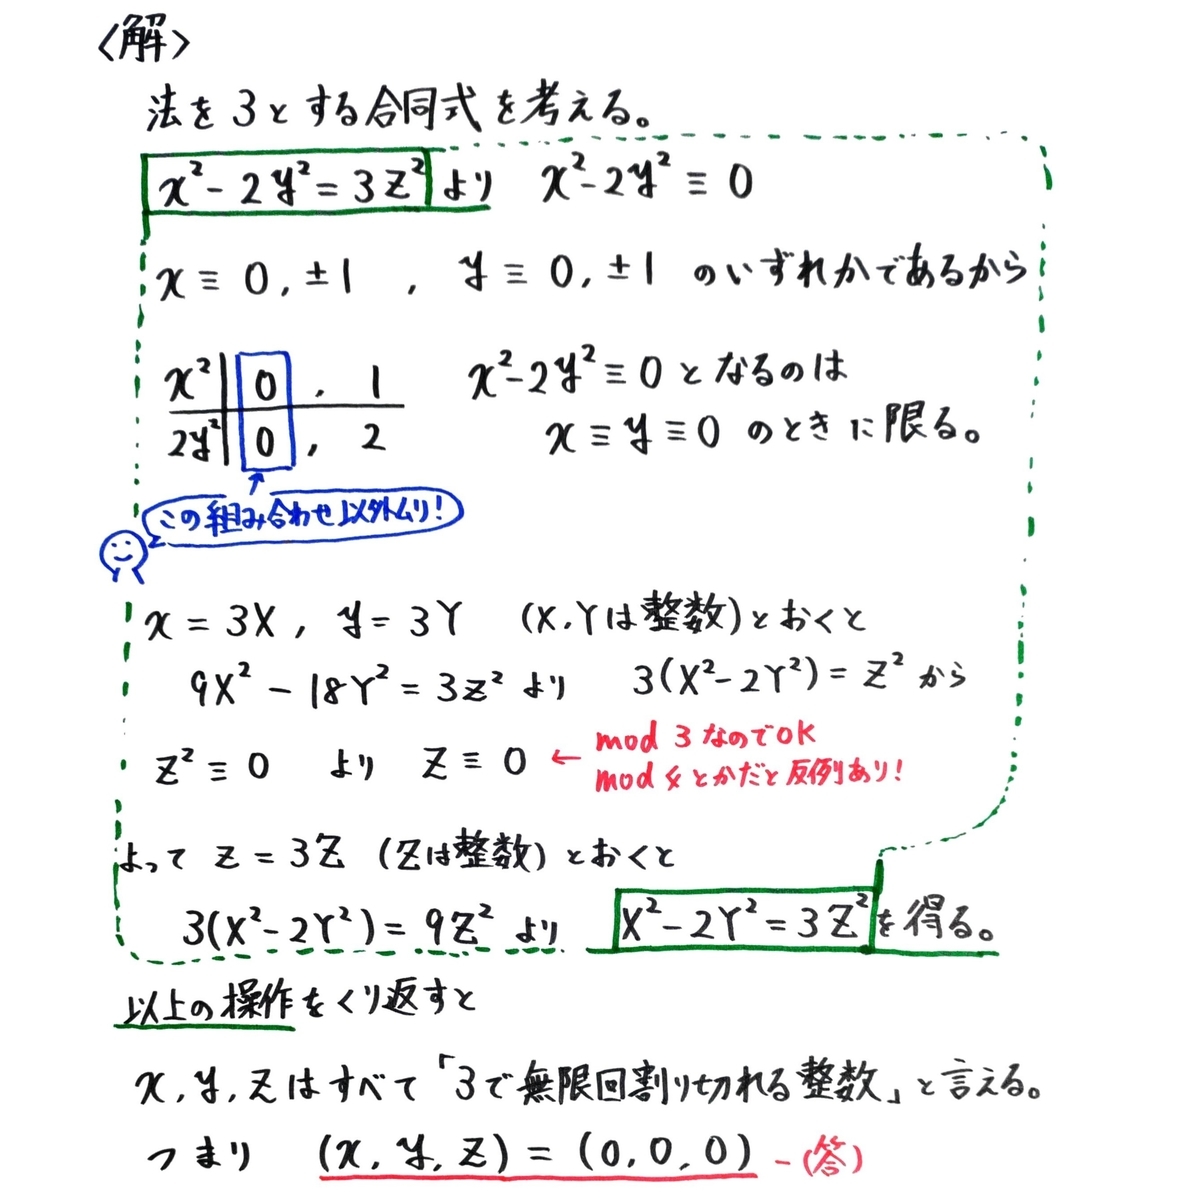 〈解〉
法を3とする合同式を考える。
x²-2y²=3z² より x²-2y²≡0
x≡0,±1 , y≡0,±1 のいずれかであるから
x² 0 , 1 x²-2y²≡0 となるのは
2y² 0 , 2 x≡y≡0 のときに限る。
この組み合わせ以外ムリ!
x=3X, y=3Y (X,Yは整数)とおくと
9X²-18Y²=3z² より 3(X²-2Y²)=z² から
z²≡0 より z≡0 ← mod 3なのでOK
mod 4とかだと反例あり!
よって z=3Z (Zは整数)とおくと
3(X²-2Y²)=9Z² より X²-2Y²=3Z² を得る。
以上の操作をくり返すと
x,y,zはすべて「3で無限回割り切れる整数」と言える。
つまり (x,y,z)=(0,0,0) -(答)